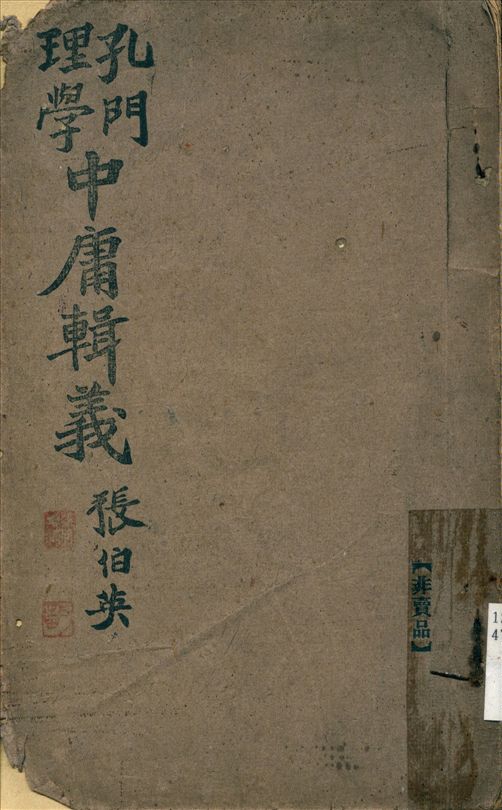 孔門
理學
中庸輯義
張伯英
【非賣品】